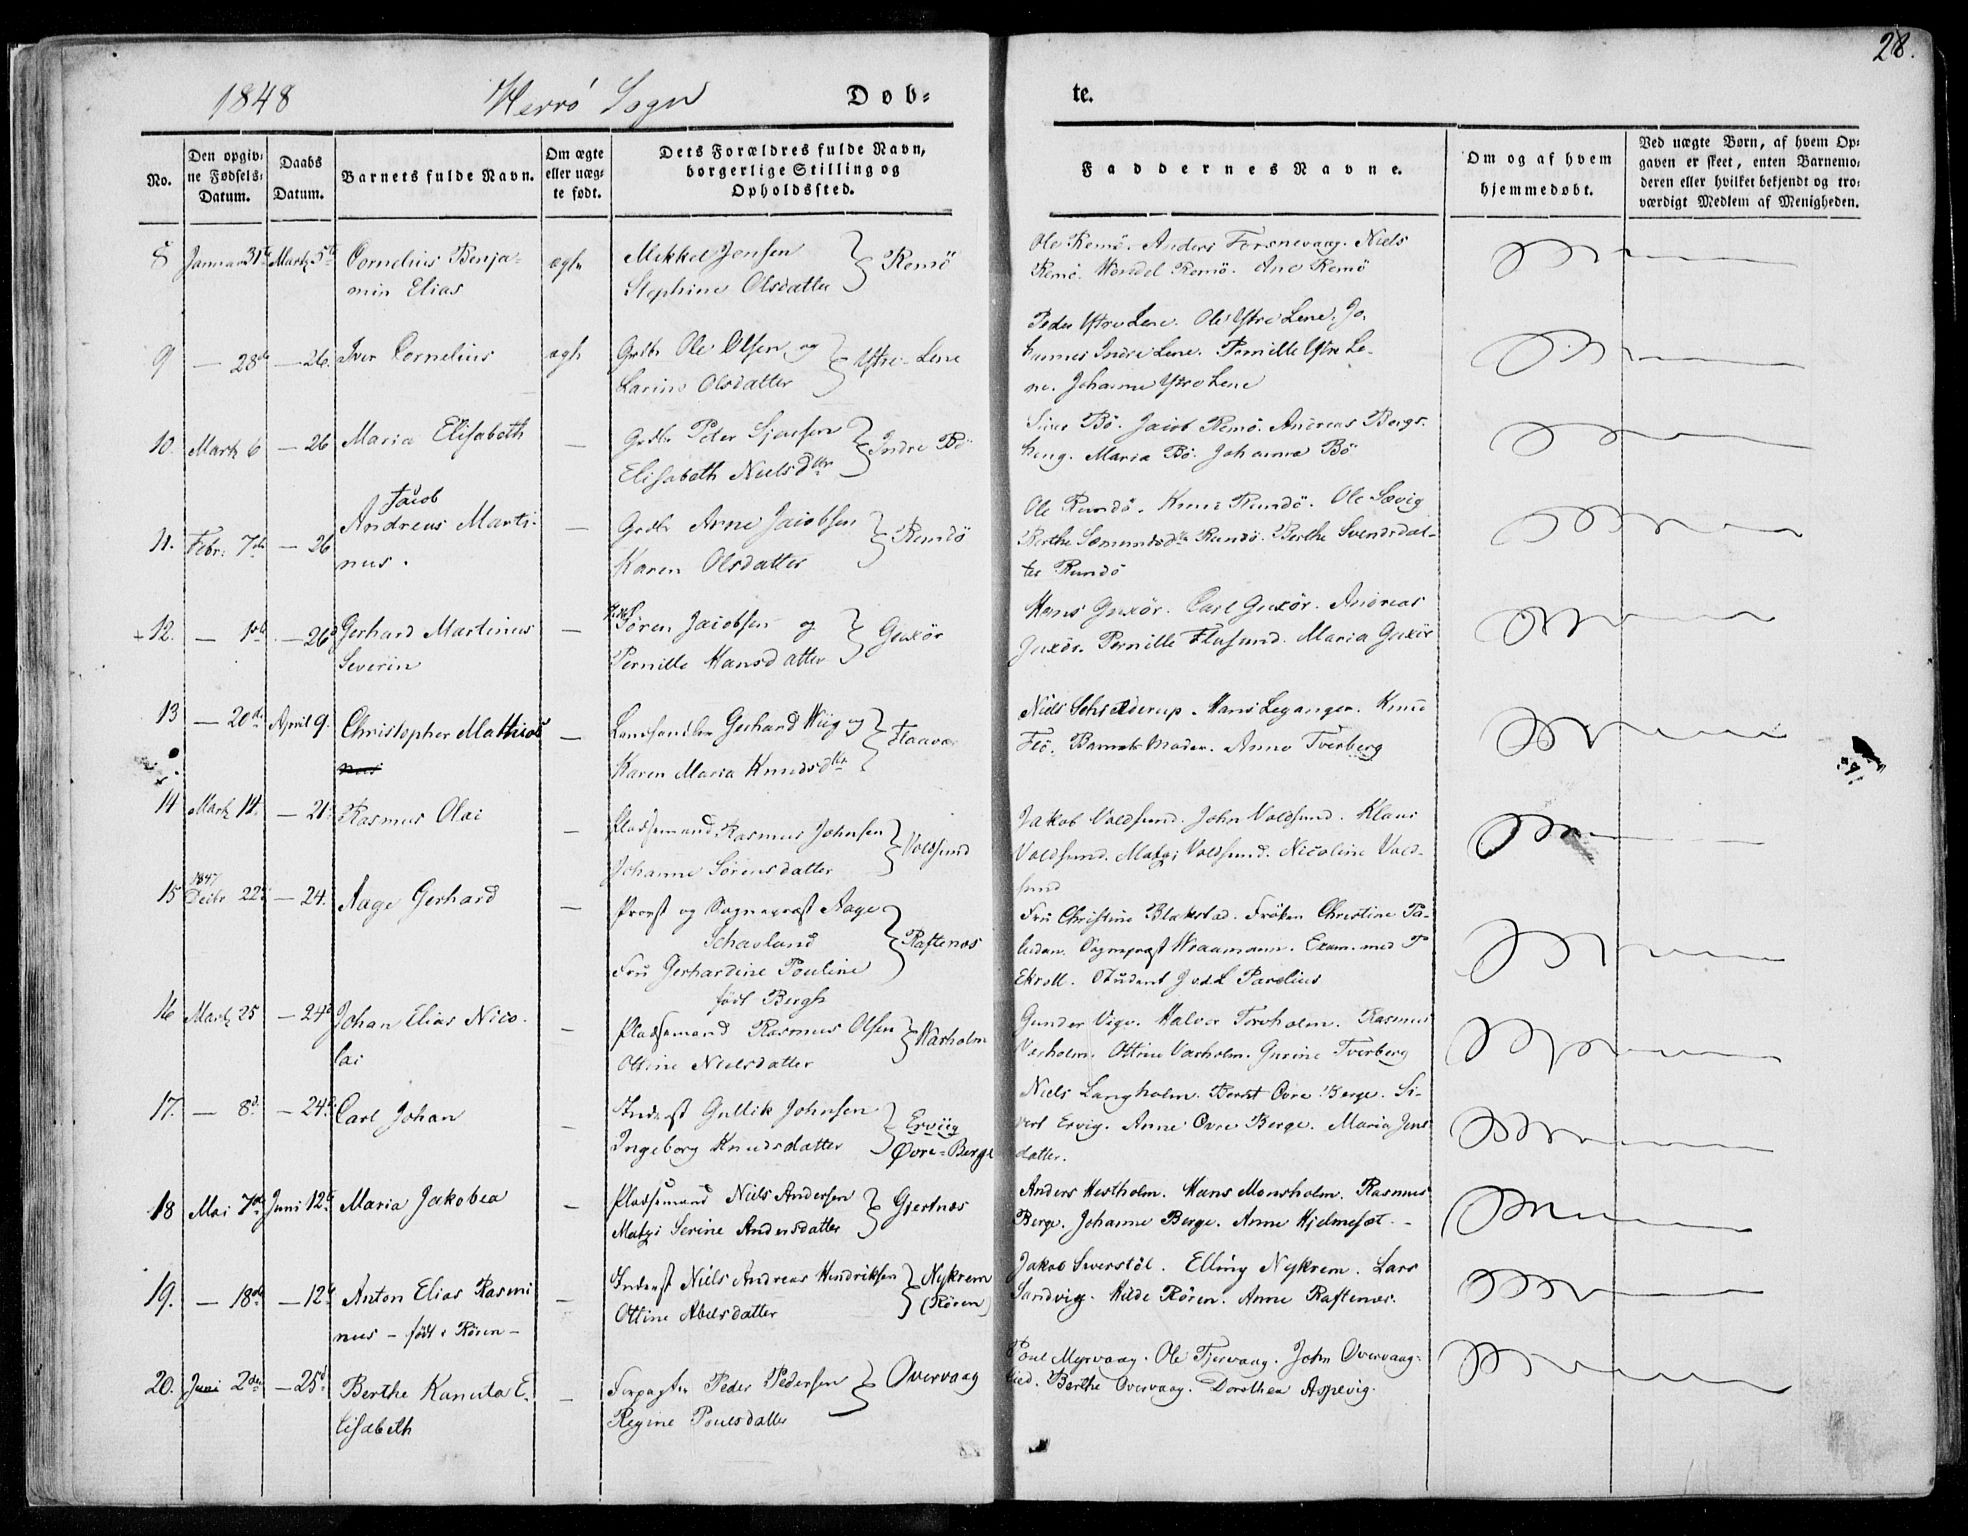 28.
1848 Herrö Sogn Døb-
te.
No.
Den opgiv-
ne Fødsels-
Datum.
Daabs
Datum.
Barnets fulde Navn.
Om ægte
eller uæg-
te født.
Dets Forældres fulde Navn,
borgerlige Stilling og
Opholdssted.
Faddernes Navne.
Om og af hvem
hjemmedøbt.
Ved uægte Børn, af hvem Op-
gaven er skeet, enten Barnemo-
deren eller hvilket bekjendt og tro-
værdigt Medlem af Menigheden.
8 Januar 31te Martz 5te Cornelius Benja-
min Elias
ægte
Mikkel Jensen
Stephine Olsdatter
Remö
Ole Remö. Anders Torsnevaag. Niels
Remö. Hendel Remö. Ane Remö
9 — 28de — 26. Iver Cornelius ægte
Grdbr Ole Olsen og
Larine Olsdatter
Ystre-Lene
Peder Ystre Lene. Ole Ystre Lene. Jo-
hannes Indre Lene. Pernille Ystre Le-
ne. Johanne Ystre Lene
10. Martz 6 — 26 Maria Elisabeth —
Grdbr Peter Sjursen
Elisabeth Nielsdtr
Indre Bö
Bö. Jacob Remö. Andreas Bergs-
heng. Maria Bö. Johanna Bö
11. Febr: 7de — 26
Jacob
Andreas Marti-
nus.
—
Grdbr Arne Jacobsen
Karen Olsdatter
Remdö
Ole Remdö. Knud Remdö. Ole Sævig
Berthe Semundsdtr Rundö. Berthe Svendsdat-
ter Rundö
+ 12. — 1ste — 26d Gerhard Martinus
Severin
—
Sören Jacobsen og
Pernille Hansdatter
Guxör
Hans Guxör. Carl Guxör. Andreas
Guxör. Pernille Flusund. Maria Guxör
13 — 20de April 9. Christopher Mathias
nus
—
Landhandler Gerhard Wiig og
Karen Maria Knudsdtr
Flaavær
Niels Schjelderup. Hans Leganger. Knud
Flö. Barnets Moder. Anne Tverberg
14 Martz 14. — 21. Rasmus Olai —
Pladsemand Rasmus Johnsen
Johanne Sörensdatter
Voldsund
Jakob Voldsund. John Voldsund. Klaus
Voldsund. Matzi Voldsund. Nicoline Vold-
sund
15 1847
Decbr 22. — 24. Aage Gerhard —
Provst og Sognepræst Aage
Schavland
Fru Gerhardine Pouline
födt Bergh
Raftenæs
Fru Christine Blakstad. Fröken Christine Pa-
ludan. Sognepræst Wraamann. Exam. med T
Ekroll. Student J. v.d.L Parelius
16 Martz 25 — 24d Johan Elias Nico-
lai
—
Pladsemand Rasmus Olsen
Ottine Nielsdatter
Varholm
Gunder Vige. Halvor Torvholm. Rasmus
Varholm. Ottine Varholm. Gurine Tverberg
17. — 8d. — 24d. Carl Johan —
Inderst Gullik Johnsen
Ingeborg Knudsdatter
Erviig
Øvre-Berge
Niels Langholm. Bernt Ovre Berge. Si-
vert Ervig. Anne Ovre Berge. Maria Jens
datter.
18 Mai 7de Juni 12te Maria Jakobea —
Pladsemand Niels Andersen
Matzi Serine Andersdatter
Gjertnæs
Anders Hestholm. Hans Monsholm. Rasmus
Berge. Johanne Berge. Anne Hjelmeset.
19. — 18de — 12te Anton Elias Rasmi
nus — födt i Rören —
—
Inderst Niels Andreas Hendriksen
Ottine Abelsdatter
Nykrem
(Rören)
Jakob Sverstöl. Elling Nykrem. Lars
Sandvig. Hilde Rören. Anne Raftenæs.
20. Juni 2den — 25d Berthe Kanuta E-
lisabeth
—
Forpagter Peder Pedersen
Regine Poulsdatter
Overvaag
Poul Myrvaag. Ole Tjervaag. John Overvaag-
lied. Berthe Overvaag. Dorothea Aspevig.